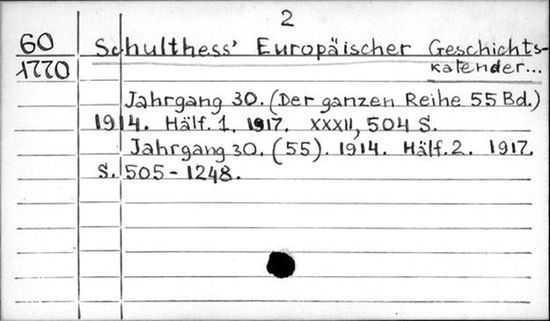 2
60 Schulthess' Europäischer Geschichts-
1770 kalender...
Jahrgang 30. (Der ganzen Reihe 55 Bd.)
1914. Hälf. 1. 1917. XXXII, 504 S.
Jahrgang 30. (55). 1914. Hälf. 2. 1917.
S. 505-1248.